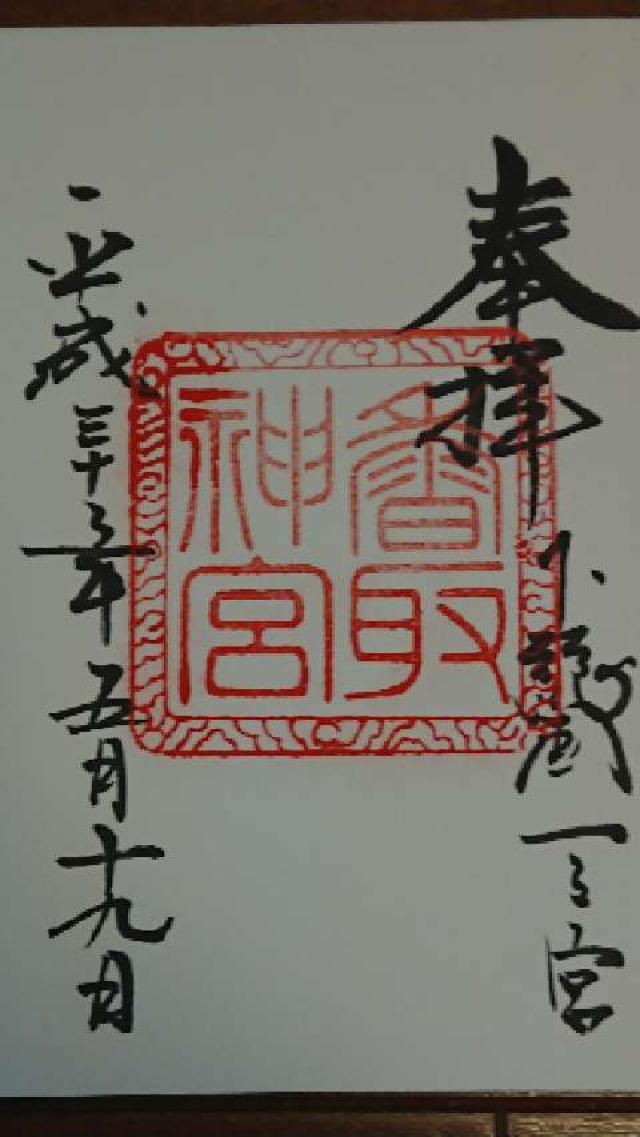 奉拝
下総國一之宮
香取
神宮
平成三十年五月十九日